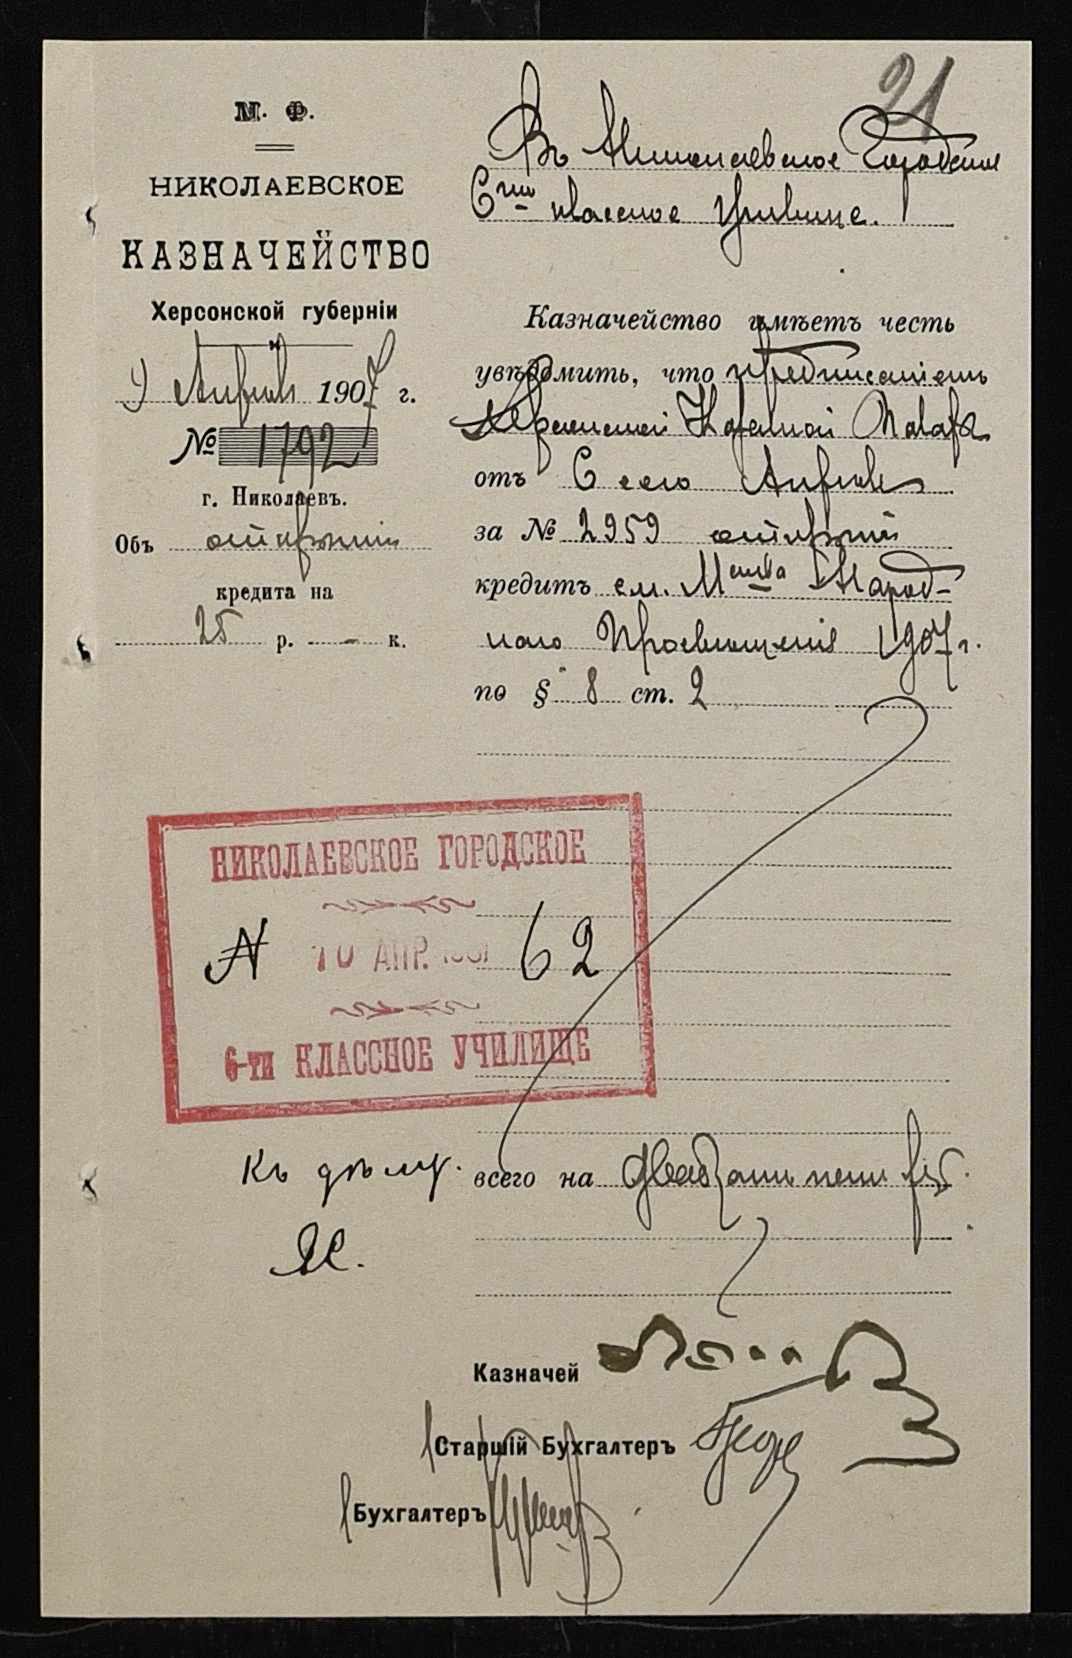 21
М. Ф.
НИКОЛАЕВСКОЕ
КАЗНАЧЕЙСТВО
Херсонской губерніи
9 Апрѣля 1907 г.
№ 1792
г. Николаевъ.
Объ открытіи
кредита на
25 р. – к.
Въ Николаевское Городское
6ти классное Училище.
Казначейство имѣетъ честь
увѣдомить, что предписаніемъ
Херсонской Казенной Палаты
отъ 6 сего Апрѣля
за № 2959 открытъ
кредитъ см. Мства Народ-
наго Просвѣщенія 1907 г.
по § 8 ст. 2
НИКОЛАЕВСКОЕ ГОРОДСКОЕ
N 10 АПР. 62
6-ти КЛАССНОЕ УЧИЛИЩЕ
Къ дѣлу.
всего на двадцать пять руб.
Казначей
Старшій Бухгалтеръ
Бухгалтеръ